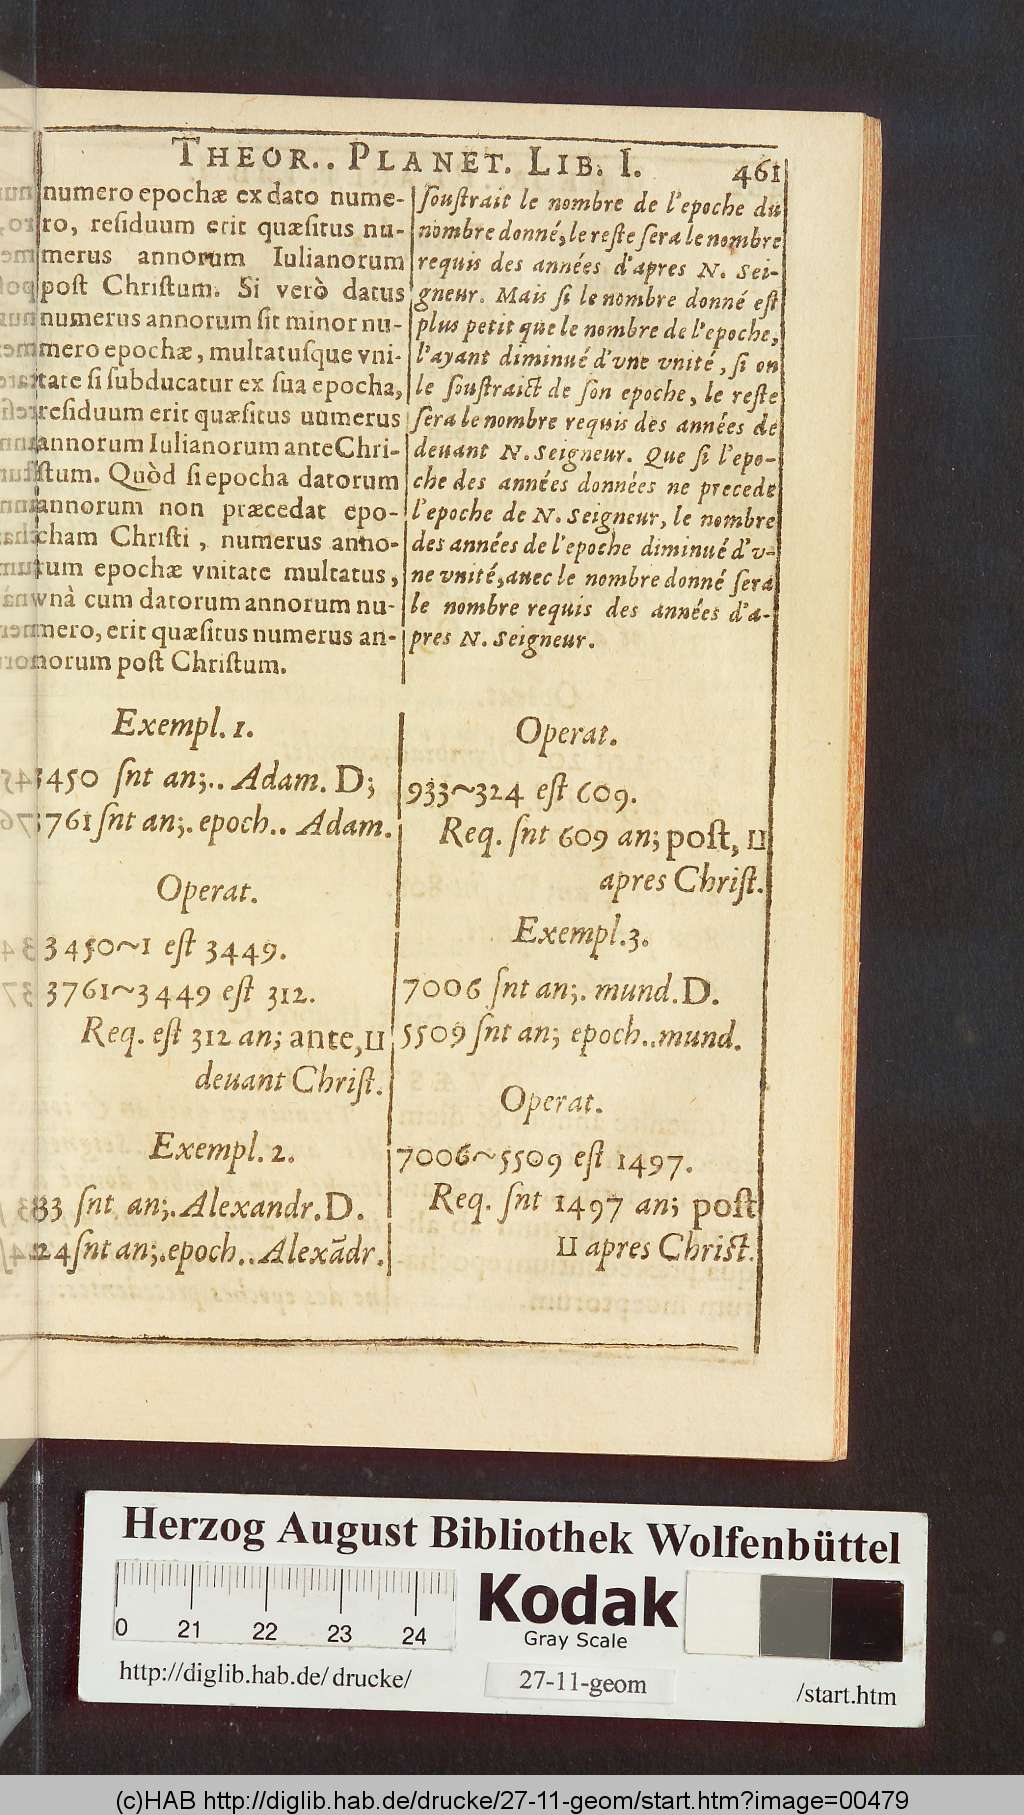 THEOR.. PLANET. LIB. I. 461
numero epochæ ex dato nume-
ro, residuum erit quæsitus nu-
merus annorum Iulianorum
post Christum. Si verò datus
numerus annorum sit minor nu-
mero epochæ, multatusque vni-
tate si subducatur ex sua epocha,
residuum erit quæsitus uumerus
annorum Iulianorum ante Chri-
stum. Quòd si epocha datorum
annorum non præcedat epo-
cham Christi, numerus anno-
rum epochæ vnitate multatus,
vnâ cum datorum annorum nu-
mero, erit quæsitus numerus an-
norum post Christum.
Exempl. 1.
3450 snt an;.. Adam. D;
3761 snt an;. epoch.. Adam.
Operat.
3450~1 est 3449.
3761~3449 est 312.
Req. est 312 an; ante, ⊔
deuant Christ.
Exempl. 2.
33 snt an;. Alexandr. D.
24 snt an;. epoch.. Alexãdr.
soustrait le nombre de l'epoche du
nombre donné, le reste sera le nombre
requis des années d'apres N. Sei-
gneur. Mais si le nombre donné est
plus petit que le nombre de l'epoche,
l'ayant diminué d'vne vnité, si on
le soustraict de son epoche, le reste
sera le nombre requis des années de
deuant N. Seigneur. Que si l'epo-
che des années données ne precede
l'epoche de N. Seigneur, le nombre
des années de l'epoche diminué d'v-
ne vnité, auec le nombre donné sera
le nombre requis des années d'a-
pres N. Seigneur.
Operat.
933~324 est 609.
Req. snt 609 an; post, ⊔
apres Christ.
Exempl. 3.
7006 snt an;. mund. D.
5509 snt an; epoch.. mund.
Operat.
7006~5509 est 1497.
Req. snt 1497 an; post
⊔ apres Christ.
Herzog August Bibliothek Wolfenbüttel
0 21 22 23 24
Kodak
Gray Scale
http://diglib.hab.de/ drucke/ 27-11-geom /start.htm
(c)HAB http://diglib.hab.de/drucke/27-11-geom/start.htm?image=00479